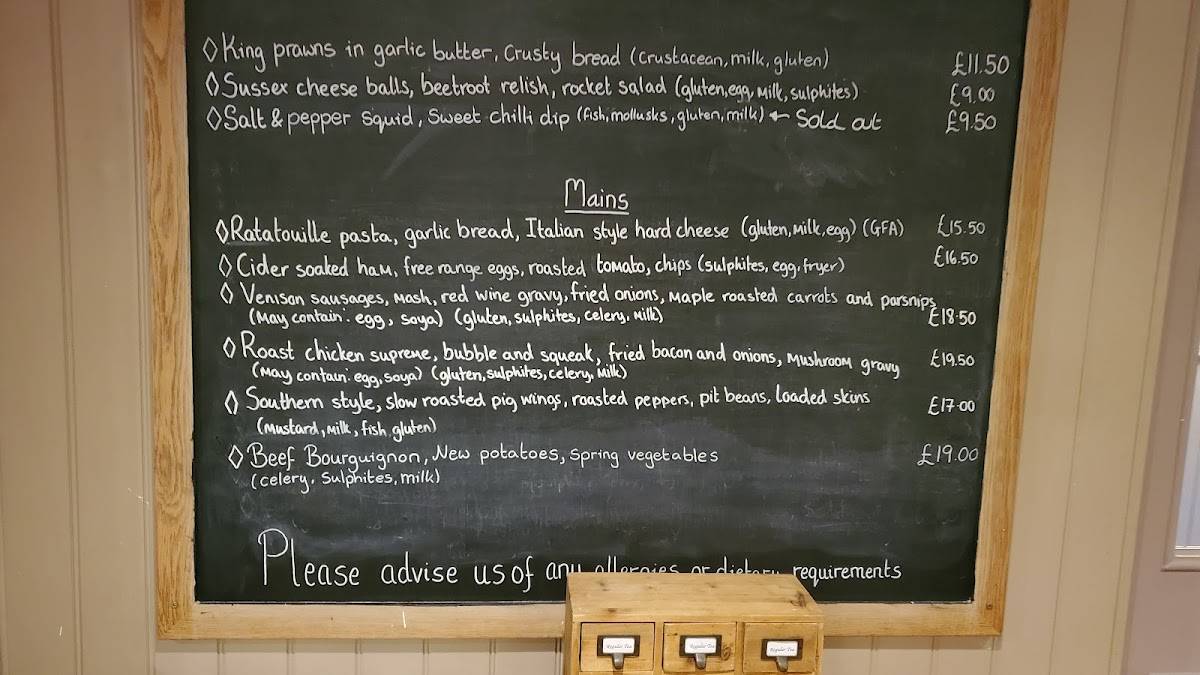 ◊King prawns in garlic butter, Crusty bread (Crustacean, milk, gluten) £11.50
◊Sussex cheese balls, beetroot relish, rocket salad (gluten, egg, Milk, sulphites) £9.00
◊Salt & pepper Squid, Sweet chilli dip (fish, mollusks, gluten, milk) ← Sold out £9.50
Mains
◊Ratatouille pasta, garlic bread, Italian style hard cheese (gluten, Milk, egg) (GFA) £15.50
◊Cider soaked ham, free range eggs, roasted tomato, chips (sulphites, egg, fryer) £16.50
◊Venison sausages, mash, red wine gravy, fried onions, Maple roasted carrots and parsnips
(May contain: egg, soya) (gluten, sulphites, celery, Milk) £18.50
◊Roast chicken supreme, bubble and squeak, fried bacon and onions, mushroom gravy £19.50
(May contain: egg, soya) (gluten, sulphites, celery, Milk)
◊Southern style, slow roasted pig wings, roasted peppers, pit beans, loaded skins £17.00
(Mustard, Milk, fish, gluten)
◊Beef Bourguignon, New potatoes, spring vegetables £19.00
(celery, Sulphites, milk)
Please advise us of any allergies or dietary requirements
Regular Tea Regular Tea Regular Tea